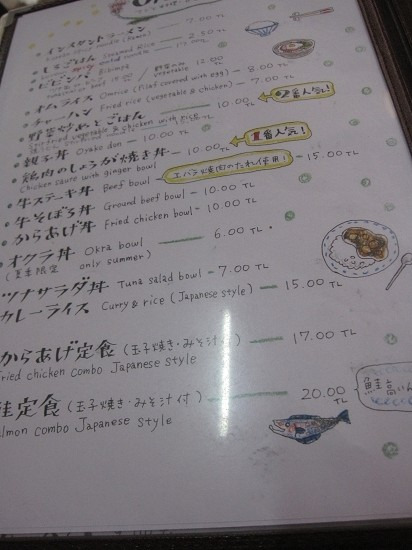 インスタントラーメン — 7.00 TL
しろごはん
ビビンバ Bibinba
オムライス Omrice (Pilaf covered with egg) — 8.00 TL
チャーハン Fried rice (vegetable & chicken) — 7.00 TL
野菜炒めとごはん 10.00 TL 2番人気!
親子丼 Oyako don — 10.00 TL 1番人気!
鶏肉のしょうが焼き丼 — 10.00 TL
Chicken sauce with ginger bowl
牛ステーキ丼 Beef bowl エバラ焼肉のたれ使用! — 15.00 TL
牛そぼろ丼 Ground beef bowl — 10.00 TL
からあげ丼 Fried chicken bowl — 10.00 TL
オクラ丼 Okra bowl 6.00 TL
(夏季限定 only summer)
ツナサラダ丼 Tuna salad bowl — 7.00 TL
カレーライス Curry & rice (Japanese style) — 15.00 TL
からあげ定食 (玉子焼き・みそ汁付) 17.00 TL
Fried chicken combo Japanese style
鮭定食 (玉子焼き・みそ汁付) 20.00 TL
Salmon combo Japanese style